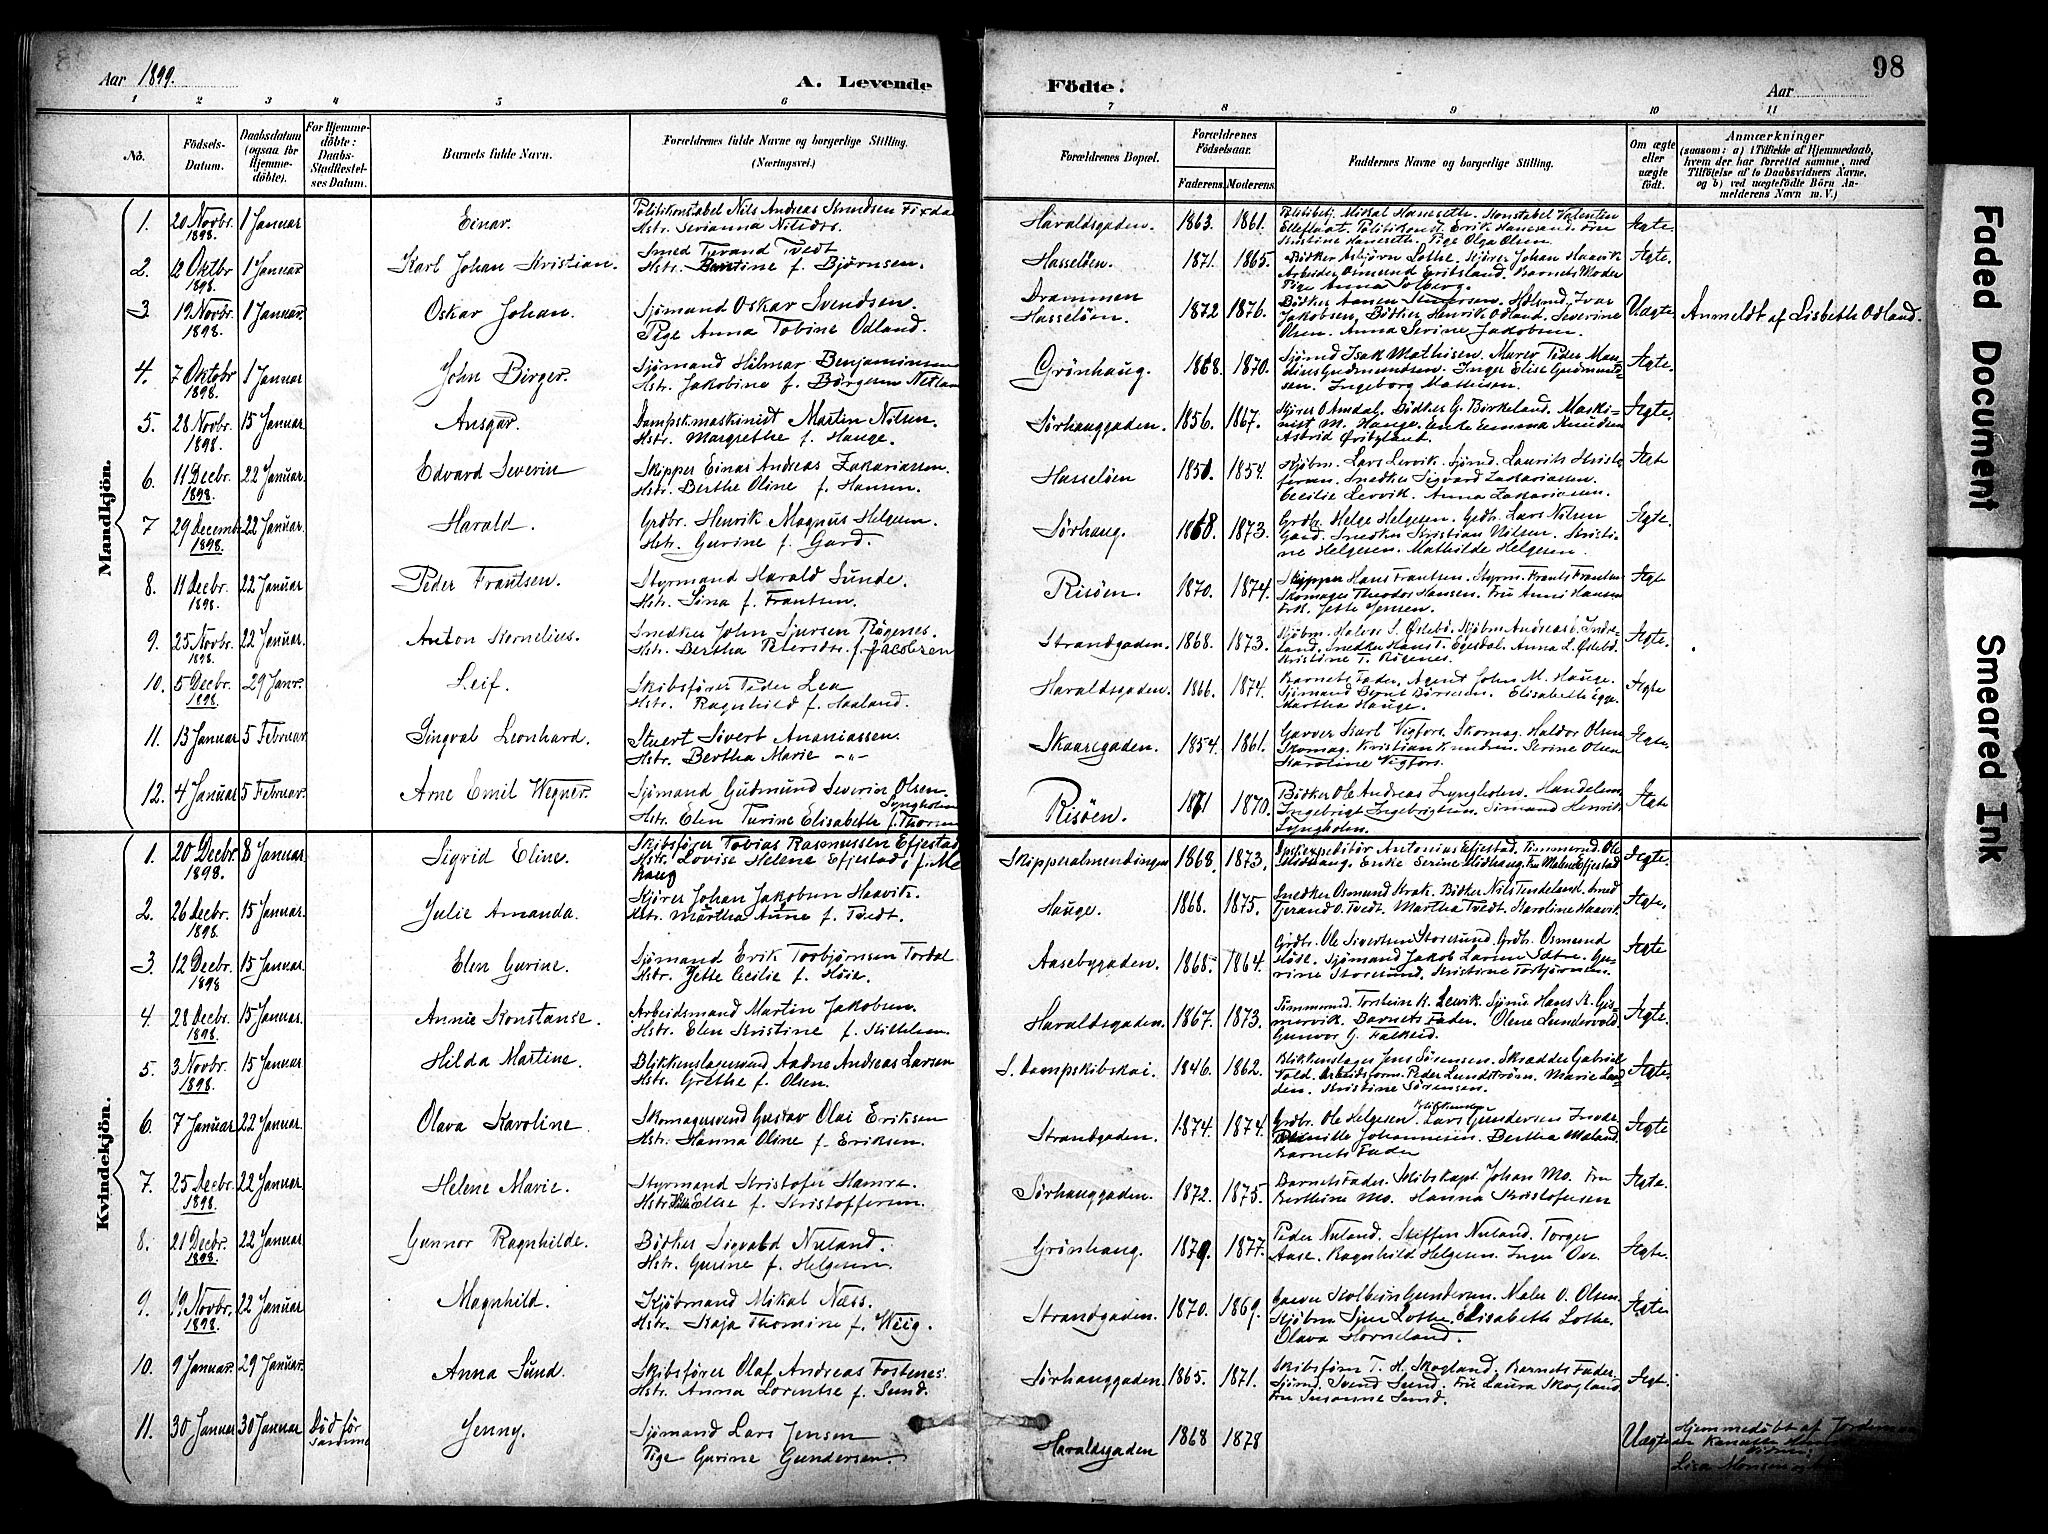 98
Aar 1899.
A. Levende
Födte.
Aar
1 2 3 4 5 6 7 8 9 10 11
No.
Födsels-Datum.
Daabsdatum (ogsaa for Hjemme-döbte).
For Hjemme-döbte: Daabs-Stadfæstel-ses Datum.
Barnets fulde Navn.
Forældrenes fulde Navne og borgerlige Stilling. (Næringsvei.)
Forældrenes Bopæl.
Forældrenes Födselsaar.
Faderens Moderens
Faddernes Navne og borgerlige Stilling.
Om ægte eller uægte födt.
Anmærkninger
(saasom: a) i Tilfælde af Hjemmedaab, hvem der har forrettet samme, med Tilföielse af to Daabsvidners Navne, og b) ved uægtefödte Börn An-melderens Navn m. V.)
Mandkjön.
1. 20 Novbr. 1898. 1 Januar Einar. Politikonstabel Nils Andreas Knudsen
Hstr. Serianna Nilsdtr. Haraldsgaden. 1863. 1861. Ægte.
2. 12 Oktbr 1898. 1 Januar Karl Johan Kristian. Smed Tjerand Tvedt
Hstr. Bentine f. Bjørnsen. Hasseløen. 1871. 1865. Bødker Asbjørn Lothe. Kjører Johan Haavik
Arbeider Osmund Eribsland. Barnets Moder
Pige Anna Solberg. Ægte.
3. 19 Novbr. 1898. 1 Januar Oskar Johan. Sjømand Oskar Svendsen.
Pige Anna Tobine Odland. Drammen
Hasseløen. 1872 1876. Jakobsen, Bødker Henrik Odland. Severine
Olsen. Anna Serine Jakobsen. Uægte Anmeldt af Lisbeth Odland.
4. 7 Oktobr 1898. 1 Januar John Birger. Sjømand Hilmar Benjaminsen
Hstr. Jakobine f. Børgesen Grönhaug. 1868 1870. Sjømd Isak Mathisen. Murer Peder Mau-
dius Gudmundsen. Inger Elise Gudmund-
sen. Ingeborg Mathisen. Ægte.
5. 28 Novbr. 1898. 15 Januar Ansgar. Dampskmaskinist Martin Nilsen.
Hstr. Margrethe f. Hauge. Sørhauggaden. 1856. 1867. Kjører O Amdal. Bødker G. Birkeland. Maski-
nist M. Hauge. Enke Emma Knudsen
Astrid Ægte
6. 11 Decbr. 1898. 22 Januar Edvard Severin Skipper Einar Andreas Zakariassen.
Hstr. Berthe Oline f. Hansen. Hasseløen 1850. 1854. Kjøbm. Lars Lervik. Sjømd. Laurits Kristo-
fersen. Snedker Sigvard Zakariassen.
Cecilie Lervik. Anna Zakariassen. Ægte
7 29 Decembr 1898. 22 Januar. Harald. Grdbr. Henrik Magnus Helgesen.
Hstr. Gurine f. Gard. Sørhaug. 1868. 1873. Grdbr. Helge Helgesen. Grdbr. Lars Nilsen
Gard. Snedker Kristian Nilsen. Kristi-
ne Helgesen. Mathilde Helgesen. Ægte.
8. 11 Decbr. 1898. 22 Januar Peder Frantsen. Styrmand Harald Sunde.
Hstr. Sina f. Frantsen. Risöen. 1870. 1874. Skipper Hans Frantsen. Styrm. Frants Frantsen
Skomager Theodor Hansen. Fru Anni Hansen
Frk. Jette Jensen. Ægte
9. 25 Novbr. 1898. 22 Januar. Anton Kornelius. Snedker John Sjursen Røgenes.
Hstr. Bertha Petersdtr. f. Jacobsen Strandgaden. 1868. 1873. Kjøbm. Halvor S. Østebø. Kjøbm Andreas
land. Snedker Hans T. Egesdal. Anna L. Østebø.
Kristine T. Røgenes. Ægte.
10. 5 Decbr. 1898. 29 Janr. Leif. Skibsfører Peder Lea
Hstr. Ragnhild f. Haaland. Haraldsgaden. 1866. 1874. Barnets Fader. Agent John M. Hauge.
Sjømand Bernt Børresen. Elisabeth Egge.
Martha Hauge. Ægte
11. 13 Januar 5 Februar Lingval Leonhard. Stuert Sivert Ananiassen.
Hstr. Bertha Marie -"- Skaaregaden. 1854. 1861. Garver Karl Vigfors. Skomag. Haldor Olsen
Skomag. Kristian Knudsen. Serine Olsen
Karoline Vigfors. Ægte.
12. 4 Januar 5 Februar. Arne Emil Wegner. Sjømand Gudmund Severin Olsen.
Lyngholm
Hstr. Elen Turine Elisabeth f. Thorsen Risöen. 1871 1870. Bødker Ole Andreas Lyngholm. Handelsm.
Ingebrigt Ingebrigtsen. Sømand Henrik
Lyngholm. Ægte
Kvindekjön.
1. 20 Decbr. 1898. 8 Januar Sigrid Eline. Skibsfører Tobias Rasmussen Efjestad
Hstr. Lovise Helene Efjestad f. Mid
haug Skipperalmendingen 1868. 1873. Antonius Efjestad. Tømmermd. Ole
Midhaug. Enke Serine Midhaug. Fru Malene Efjestad Ægte.
2. 26 Decbr. 1898. 15 Januar. Julie Amanda. Kjører Johan Jakobsen Haavik.
Hstr. Martha Aune f. Tvedt. Hauge. 1868. 1875. Snedker Osmund Krak. Bødker Nils Tendeland. Smed
Tjerand O. Tvedt. Martha Tvedt. Karoline Haavik Ægte.
3. 12 Decbr. 1898 15 Januar. Elen Gurine. Sjømand Erik Torbjørnsen
Hstr. Jette Cecilie f. Høie. Aasebygaden. 1865. 1864. Grdbr. Ole Sivertsen Storesund. Grdbr. Osmund
Høie. Sjømand Jakob Larsen Sætre. Gu-
rine Storesund. Kristine Torbjørnsen. Ægte
4. 28 Decbr. 1898. 15 Januar. Annie Konstanse. Arbeidsmand Martin Jakobsen.
Hstr. Elen Kristine f. Kittelsen. Haraldsgaden. 1867. 1873. Tømmermd. Torstein K. Lervik. Sjømd. Hans K. Gis-
mervik. Barnets Fader. Olene Lundervold.
Gunvor G. Falkeid. Ægte.
5. 3 Novbr. 1898. 15 Januar Hilda Martine. Blikkenslagersvend Aadne Andreas Larsen
Hstr. Grethe f. Olsen. S. Dampskibskai. 1846. 1862. Blikkenslager Jens Sørensen. Skrædder Gabriel
Told. Arbeidsform. Peder Lundstrøm. Marie Lun-
den. Kristine Sørensen. Ægte.
6. 7 Januar 22 Januar. Olava Karoline. Skomagersvend Gustav Olai Eriksen
Hstr. Hanna Oline f. Eriksen. Strandgaden. 1874. 1874. Grdbr. Ole Helgesen. Lars Gundersen
Pernille Johannesen. Bertha Maland.
Barnets Fader Ægte
7. 25 Decbr. 1898. 22 Januar. Helene Marie. Styrmand Kristofer Hamre.
Hstr. Elise f. Kristoffersen. Sørhauggaden. 1872. 1875. Barnets Fader. Skibskapt. Johan Mo. Fru
Berthine Mo. Hanna Kristofersen Ægte.
8. 21 Decbr. 1898. 22 Januar Gunnor Ragnhilde. Bødker Sigvald Nuland.
Hstr. Gurine f. Helgesen. Grönhaug. 1879. 1877. Peder Nuland. Steffen Nuland. Torger
Aase. Ragnhild Helgesen. Inger Ove. Ægte.
9. 19 Novbr. 1898. 22 Januar Magnhild. Kjøbmand Mikal Næss.
Hstr. Kaja Thomine f. Wiig. Strandgaden. 1870. 1869. Garver Kolbein Gundersen. Maler O. Olsen.
Kjøbm Sjur Lothe. Elisabeth Lothe.
Olava Horneland. Ægte
10. 9 Januar. 29 Januar. Anna Sund. Skibsfører Olaf Andreas Fostenes.
Hstr. Anna Lorentse f. Sund. Sørhauggaden. 1865. 1871. Skibsfører T. H. Skogland. Barnets Fader.
Sjømd. Svend Sund. Fru Laura Skogland
Fru Susanne Sund. Ægte.
11. 30 Januar 30 Januar Död för samme Jenny. Sjømand Lars Jensen
Pige Gurine Gundersen. Haraldsgaden 1868 1878 Uægte Hjemmedöbt af Jordemor
Lisa Monsen
Faded Document
Smeared Ink